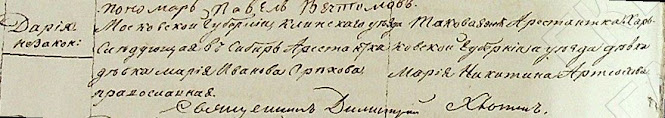 Пономарь Павелъ Вечтомовъ.
Дарія
незакон:
Московской Губерніи Клинскаго уѣзда
Слѣдующая въ Сибирь Арестантка
дѣвка Марія Иванова Орѣхова
православная.
Таковаяже Арестантка Харь-
ковской Губерніи и уѣзда дѣвка
Марія Никитина
Священникъ Димитрій